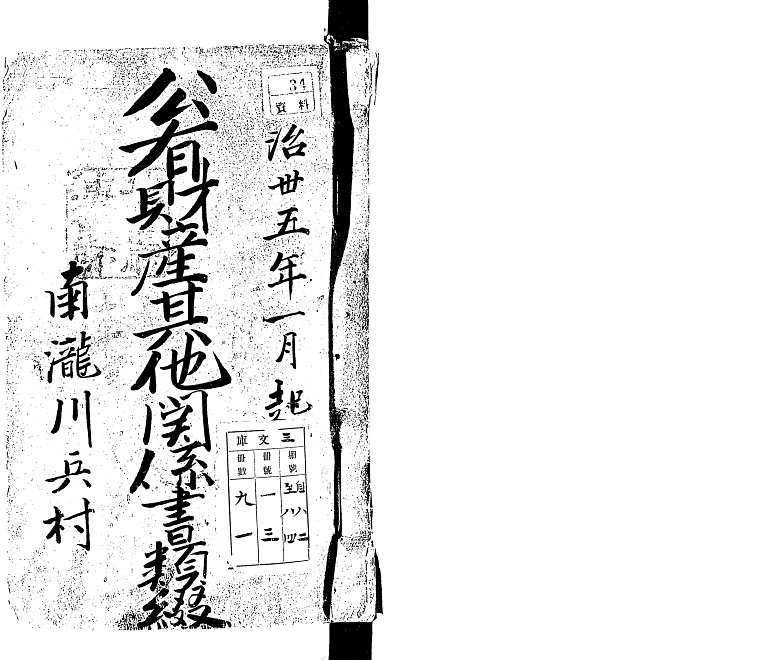 34
資料
治丗五年一月起
公有財産其他関係書類綴
南瀧川兵村
三文庫
棚號
自八二
至八四
冊號
一三
冊數
九一